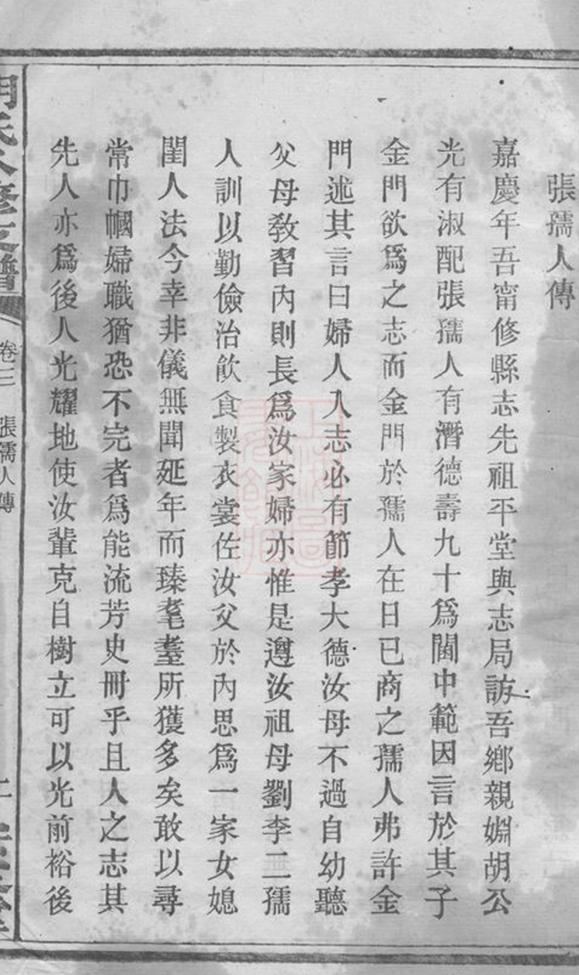 張孺人傳
嘉慶年吾甯修縣志先祖平堂與志局訪吾鄉親婣胡公
光有淑配張孺人有潛德壽九十爲閫中範因言於其子
金門欲爲之志而金門於孺人在日已商之孺人弗許金
門述其言曰婦人入志必有節孝大德汝母不過自幼聽
父母教習內則長爲汝家婦亦惟是遵汝祖母劉李二孺
人訓以勤儉治飲食製衣裳佐汝父於內思爲一家女媳
閨人法今幸非儀無聞延年而臻耄耋所獲多矣敢以尋
常巾幗婦職猶恐不完者爲能流芳史冊乎且人之志其
先人亦爲後人光耀地使汝輩克自樹立可以光前裕後
胡氏八修支譜
卷三
張孺人傳